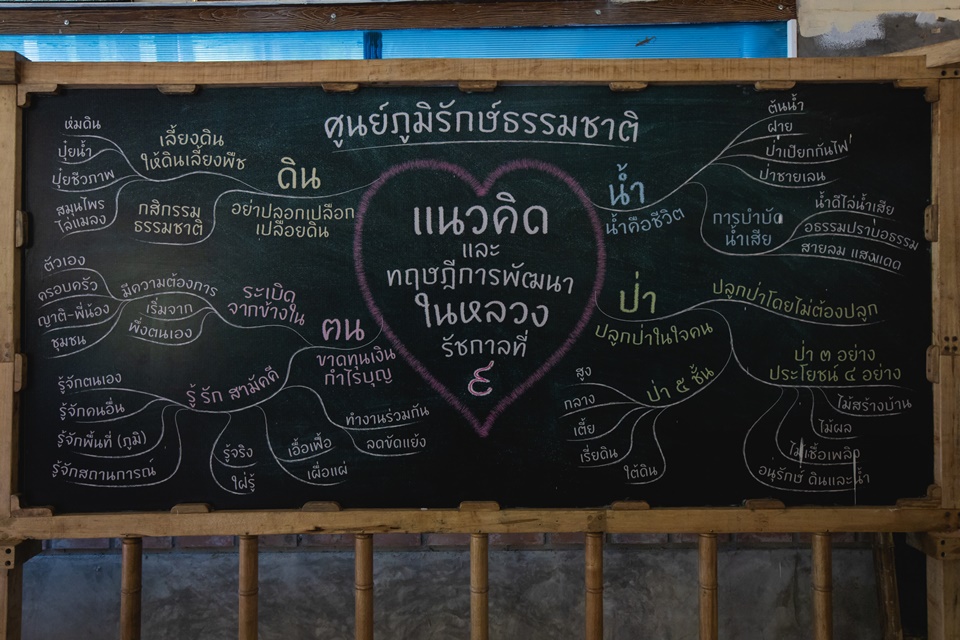 ศูนย์ภูมิรักษ์ธรรมชาติ
แนวคิด
และ
ทฤษฎีการพัฒนา
ในหลวง
รัชกาลที่
๙
ดิน
เลี้ยงดิน
ให้ดินเลี้ยงพืช
ห่มดิน
ปุ๋ยน้ำ
ปุ๋ยชีวภาพ
สมุนไพร
ไล่แมลง
อย่าปลอกเปลือก
เปลือยดิน
กสิกรรม
ธรรมชาติ
คน
ระเบิด
จากข้างใน
มีความต้องการ
เริ่มจาก
พึ่งตนเอง
ตัวเอง
ครอบครัว
ญาติ-พี่น้อง
ชุมชน
ขาดทุนเงิน
กำไรบุญ
รู้ รัก สามัคคี
รู้จักตนเอง
รู้จักคนอื่น
รู้จักพื้นที่ (ภูมิ)
รู้จักสถานการณ์
รู้จริง
ใฝ่รู้
เอื้อเฟื้อ
เผื่อแผ่
ทำงานร่วมกัน
ลดขัดแย้ง
น้ำ
น้ำคือชีวิต
ต้นน้ำ
ฝาย
ป่าเปียกกันไฟ
ป่าชายเลน
การบำบัด
น้ำเสีย
น้ำดีไล่น้ำเสีย
อธรรมปราบอธรรม
สายลม แสงแดด
ป่า
ปลูกป่าในใจคน
ปลูกป่าโดยไม่ต้องปลูก
ป่า ๓ อย่าง
ประโยชน์ ๔ อย่าง
ไม้สร้างบ้าน
ไม้ผล
ไม้เชื้อเพลิง
อนุรักษ์ ดินและน้ำ
ป่า ๕ ชั้น
สูง
กลาง
เตี้ย
เรี่ยดิน
ใต้ดิน